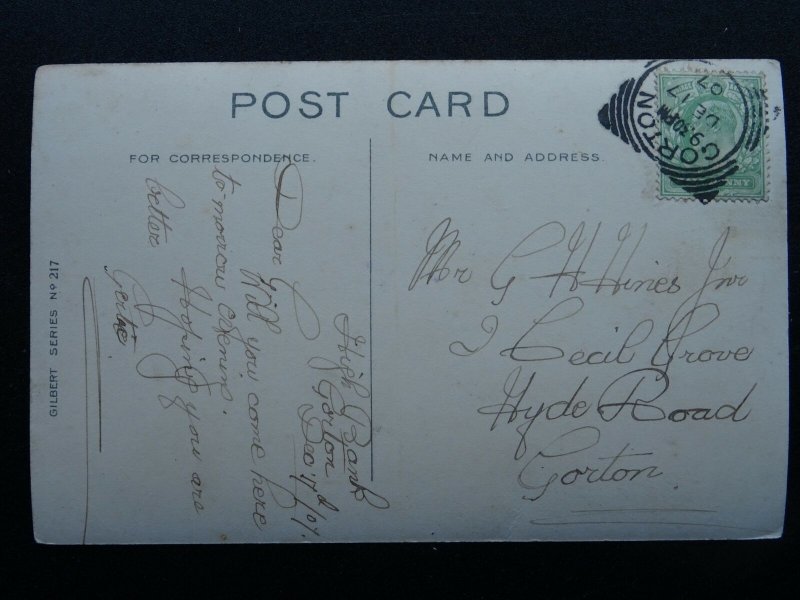 POST CARD
FOR CORRESPONDENCE.
NAME AND ADDRESS.
GILBERT SERIES Nº 217
High Bank
Gorton
Dec 17th/07.
Dear G
Will you come here
to-morrow evening.
Hoping you are
better
Gertie.
Mr G H Hines Jnr
2 Cecil Grove
Hyde Road
Gorton.
GORTON
9.30PM
DE 17
07